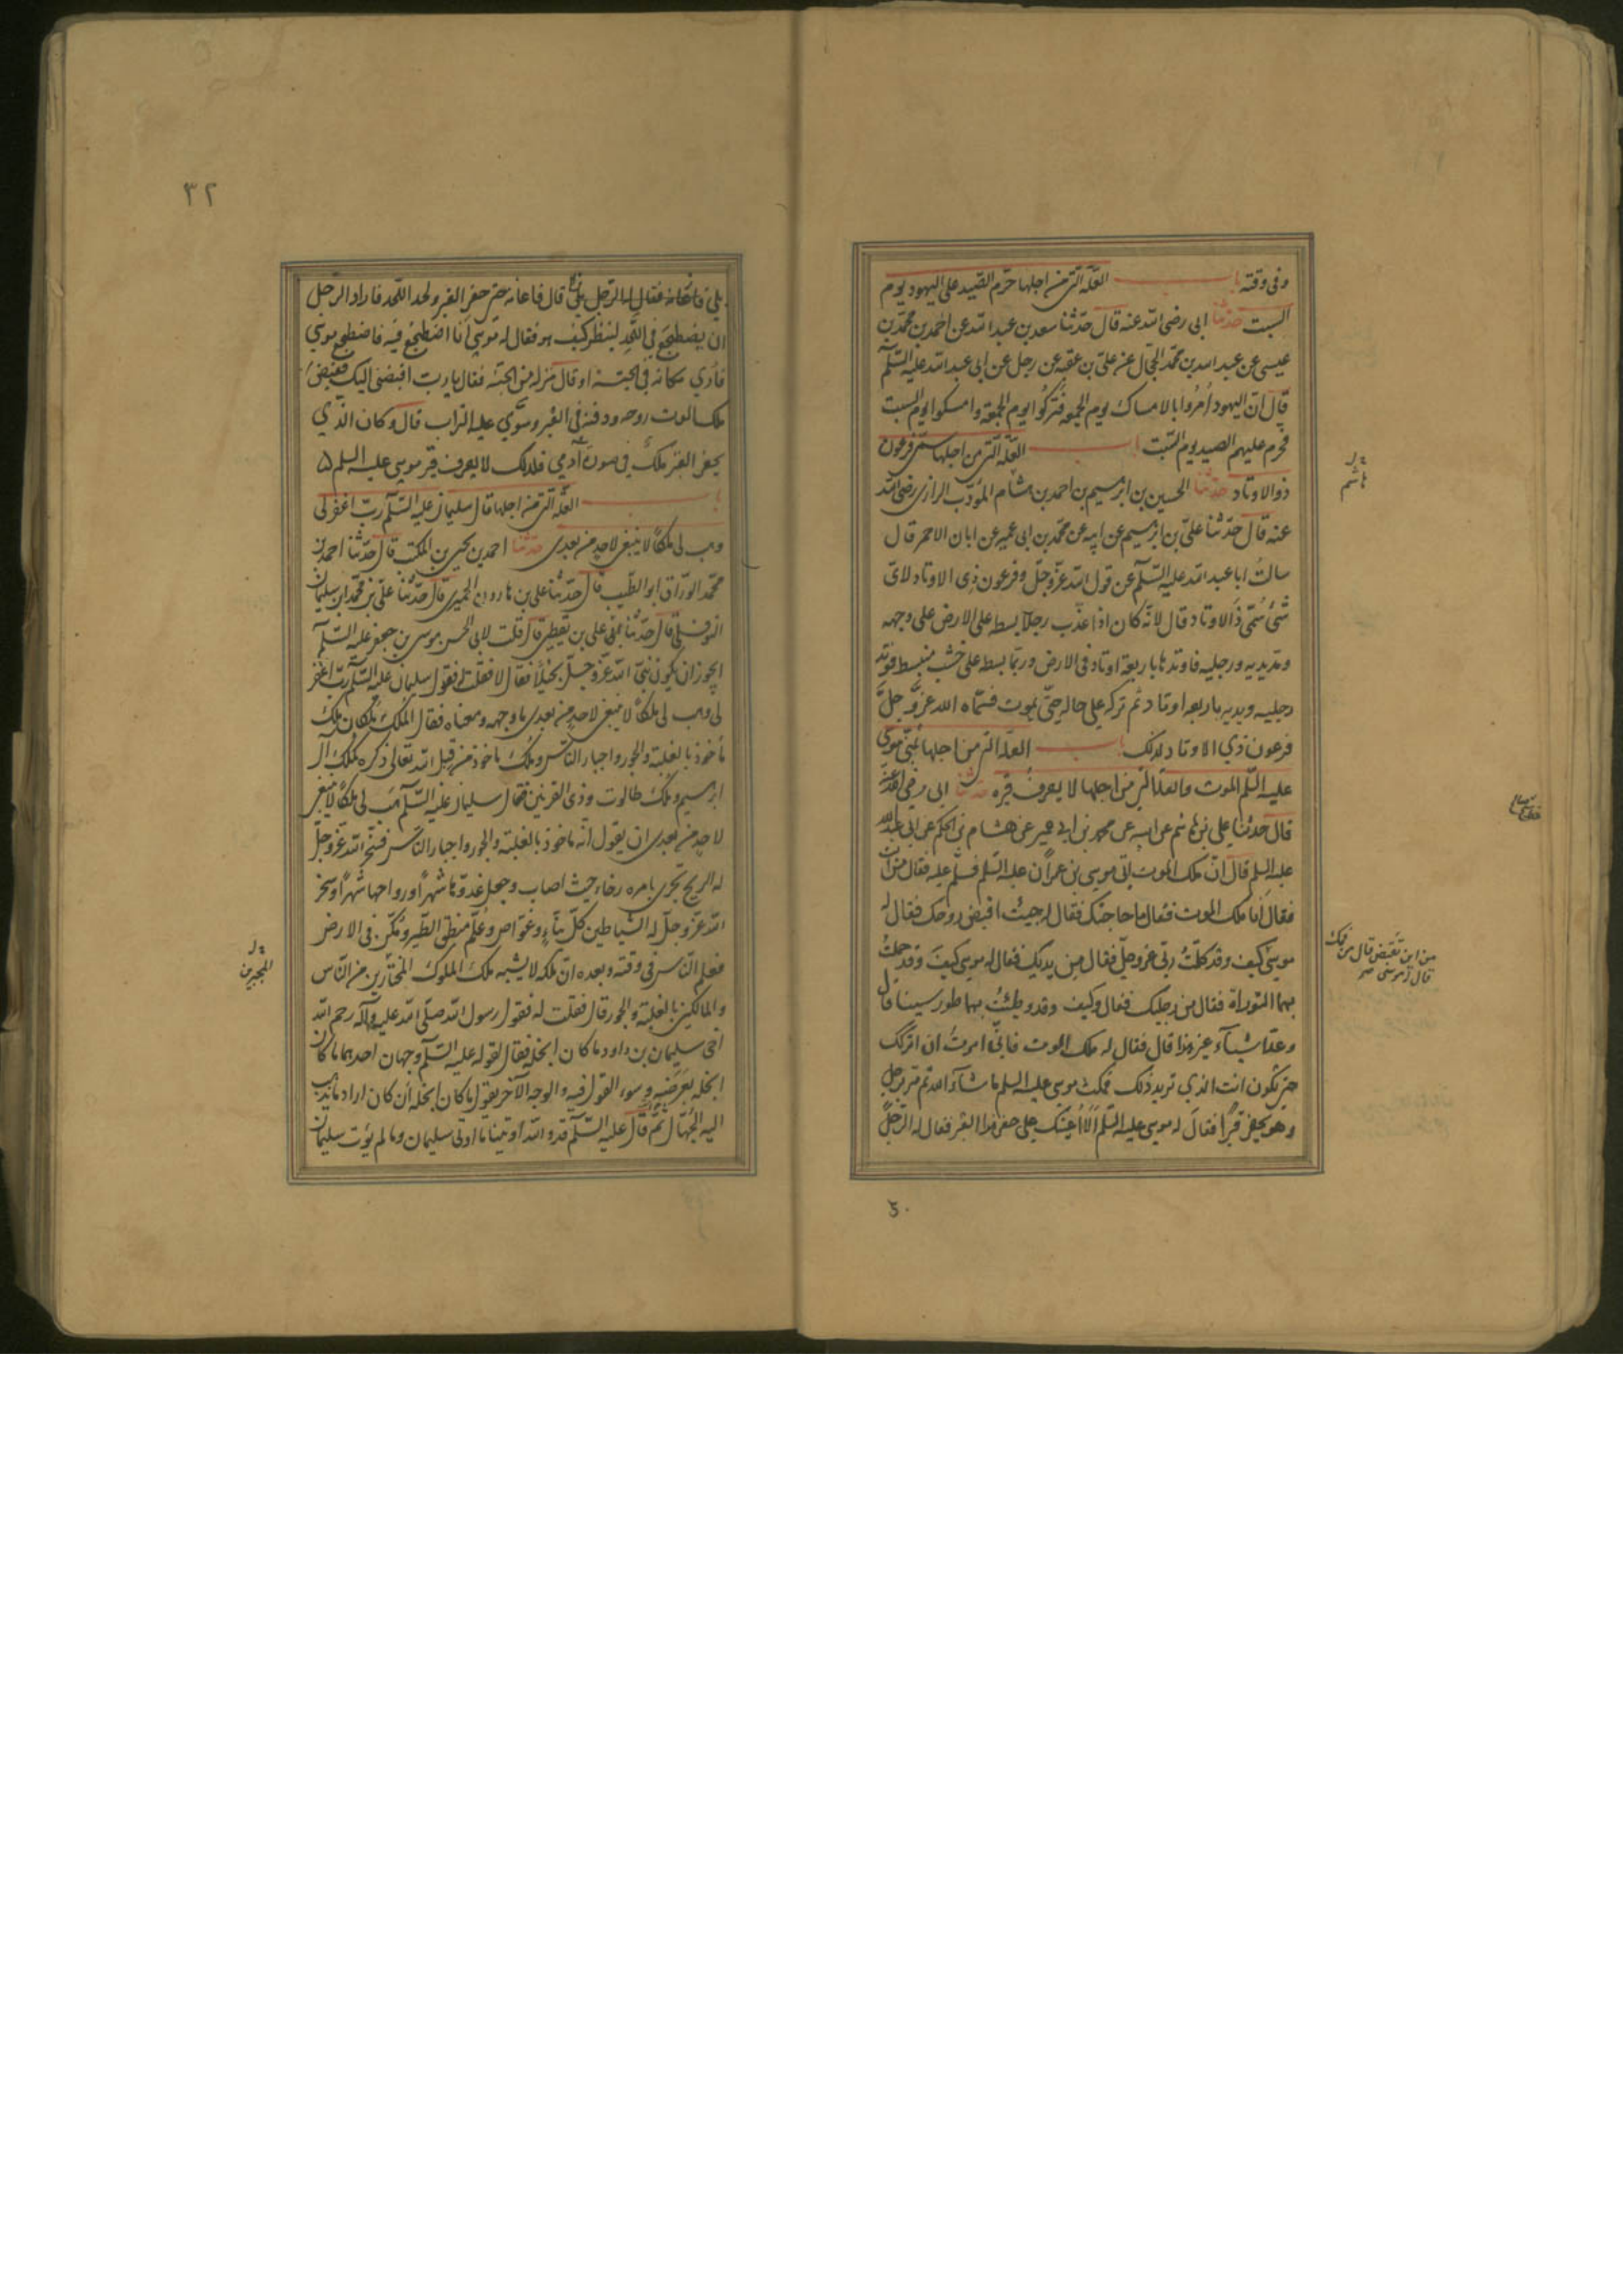 وفى وقته باب العلة التى من اجلها حرم الصيد على اليهود يوم
السبت حدثنا ابى رضى الله عنه قال حدثنا سعد بن عبد الله عن احمد بن محمد بن
عيسى عن عبد الله بن محمد الحجال عن على بن عقبه عن رجل عن ابى عبد الله عليه السلم
قال ان اليهود اُمرُوا بالامساك يوم الجمعه فتركُوا يوم الجمعة وامسكوا يوم السبت
فحرم عليهم الصيد يوم السبت باب العلة التى من اجلها سمى فرعون
ذو الاوتاد حدثنا الحسين بن ابرهيم بن احمد بن هشام المؤدب الرازى رضى الله
عنه قال حدثنا على بن ابرهيم عن ابيه عن محمد بن ابى عمير عن ابان الاحمر قال
سالت ابا عبد الله عليه السلم عن قول الله عز وجل وفرعون ذى الاوتاد لاى
شئ سُمّى ذا الاوتاد قال لانه كان اذا عذب رجلا بسطه على الارض على وجهه
ومد يديه ورجليه فاوتدها باربعة اوتاد فى الارض وربما بسطه على خشب منبسط فوتد
رجليه ويديه باربعه اوتاد ثم تركه على حاله حتى يموت فسماه الله عز وجل
فرعون ذي الاوتاد لذلك باب العلة التى من اجلها تمنى موسى
عليه السلم الموت والعلة التى من اجلها لا يعرف قبره حدثنا ابى رضى الله عنه
قال حدثنا على بن هاشم عن ابيه عن محمد بن ابى عمير عن هشام بن الحكم عن ابى عبد الله
عليه السلم قال ان ملك الموت اتى موسى بن عمران عليه السلم فسلم عليه فقال من انت
فقال انا ملك الموت فقال ما حاجتك فقال له جيئت اقبض روحك فقال له
موسى كيف وقد كلمتُ ربى عز وجل فقال من يديك فقال له موسى كيف وقد حملت
بهما التوراة فقال من رجليك فقال وكيف وقد وطئتُ بهما طور سينا قال
وعد اشيآء غير هذا قال فقال له ملك الموت فانى امرتُ ان اتركك
حتى تكون انت الذي تريد ذلك فمكث موسى عليه السلم ما شآء الله ثم مر برجل
وهو يحفر قبرا فقال له موسى عليه السلم الا اُعينك على حفر هذا القبر فقال له الرجل
هاشم
من اين تقبض قال من فمك
قال له موسى صح
٣٢
بلى فاعانه فقال له الرجل بلى قال فاعانه حتى حفر القبر ولحد اللحد فاراد الرجل
ان يضطجع فى اللحد لينظر كيف هو فقال له موسى انا اضطجع فيه فاضطجع موسى
فاُري مكانه فى الجنة او قال منزله من الجنة فقال يا رب اقبضنى اليك فقبض
ملك الموت روحه ودفنه فى القبر وسوّي عليه التراب قال وكان الذي
يحفر القبر ملك فى صورة آدمي فلذلك لا يعرف قبر موسى عليه السلم
باب العلة التى من اجلها قال سليمان عليه السلم رب اغفر لى
وهب لى ملكًا لا ينبغى لاحد من بعدى حدثنا احمد بن يحيى بن المكتب قال حدثنا احمد بن
محمد الوراق ابو الطيب قال حدثنا على بن هارون الحميرى قال حدثنا على بن محمد ابن سليمان
النوفلى قال حدثنا ابى على بن يقطين قال قلت لابى الحسن موسى بن جعفر عليه السلم
ايجوز ان يكون نبى الله عز وجل بخيلًا فقال لا فقلت فقول سليمان عليه السلم رب اغفر
لى وهب لى ملكًا لا ينبغى لاحد من بعدى ما وجهه ومعناه فقال الملك ملكان ملك
مأخوذ بالغلبة والجور واجبار الناس وملك ماخوذ من قبل الله تعالى ذكره كملك آل
ابرهيم وملك طالوت وذى القرنين فقال سليمان عليه السلم هب لى ملكًا لا ينبغى
لاحد من بعدى ان يقول انه ماخوذ بالغلبة والجور واجبار الناس فسخر الله عز وجل
له الريح تجرى بامره رخاء حيث اصاب وجعل غدوها شهرًا ورواحها شهرًا وسخر
الله عز وجل له الشياطين كل بناءٍ وغواص وعُلّم منطق الطير ومُكّن فى الارض
فعلم الناس فى وقته وبعده ان ملكه لا يشبه ملك الملوك المختارين من الناس
والمالكين بالغلبة والجور قال فقلت له فقول رسول الله صلى الله عليه وآله رحم الله
اخى سليمان بن داود ما كان ابخله فقال لقوله عليه السلم وجهان احدهما ما كان
ابخله بعرضه وسوء القول فيه والوجه الآخر يقول ما كان ابخله ان كان اراد ما يذهب
اليه الجُهّال ثم قال عليه السلم قد والله اوتينا ما اوتى سليمان وما لم يؤت سليمان
المجبرين